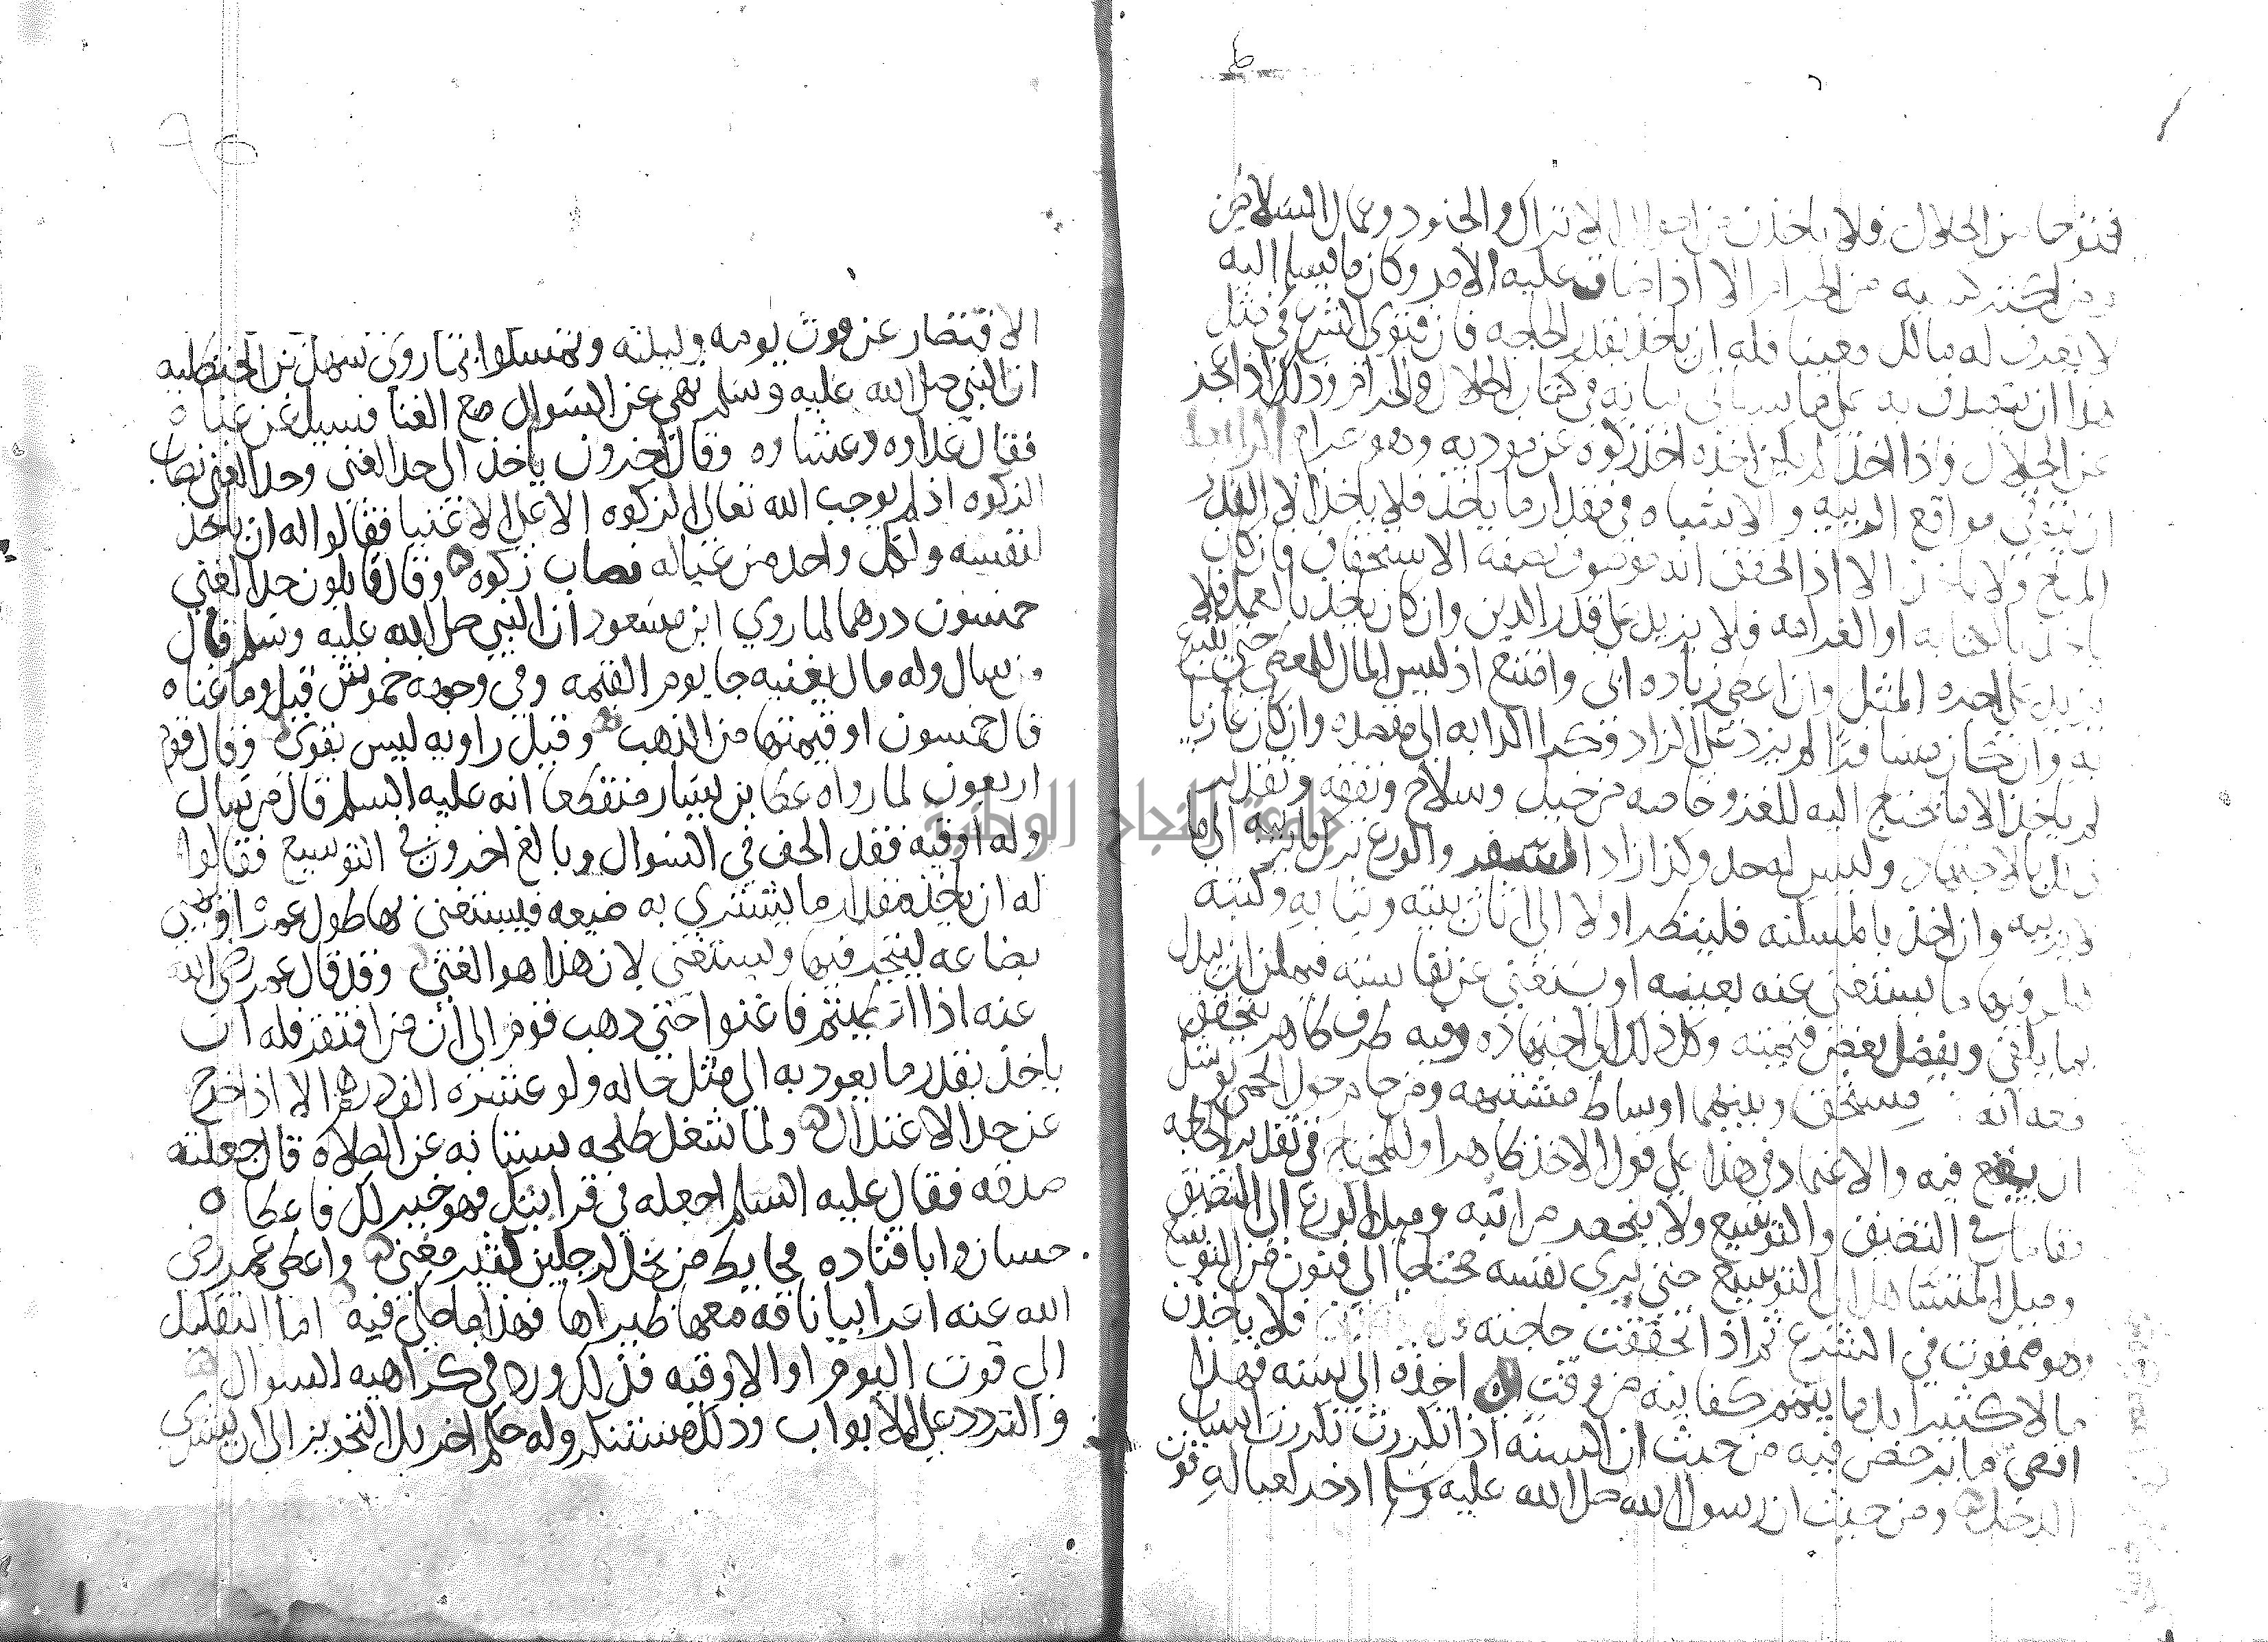 فتوحا من الحلال فلا ياخذن من اموال الاتراك والجنود وعمال السلاطين
ومن اكثر كسبه من الحرام الا اذا ضاق عليه الامر وكان ما يسلم اليه
لا يعرف له مالك معينا فله ان ياخذ بقدر الحاجه فان فتوى الشرع في مثل
هذا ان يتصدق به على ما سياتي بيانه في كتاب الحلال والحرام وذلك اذا عجز
عن الحلال فاذا اخذ لم يكن اخذه اخذ زكوه عن موديه وهو حرام
ان يتوقى مواقع الريبه والاشتباه في مقدار ما ياخذ فلا ياخذ الا القدر
المباح ولا ياخذ الا اذا تحقق انه موصوف بصفه الاستحقاق فان كان
ياخذ بالكتابه او الغرامه فلا يزيد على قدر الدين وان كان ياخذ بالعمل فلا
يزيد على اجره المثل وان اعطي زياده ابى وامتنع اذ ليس المال للمعطي حتى يتبرع
به وان كان مسافرا لم يزد على الزاد وكرا الدابه الى مقصده وان كان غازيا
لم ياخذ الا ما يحتاج اليه للغزو خاصه من خيل وسلاح ونفقه وتقدير
ذلك بالاجتهاد وليس له حد وكذا زاد السفر والورع ترك ما يريبه الى ما
لا يريبه وان اخذ بالمسكنه فلينظر اولا الى اثاث بيته وثيابه وكتبه
هل فيها ما يستغنى عنه بعينه او يستغنى عن نفاسته فيمكن ان يبدل
بما يكفي ويفضل بعض قيمته وكل ذلك الى اجتهاده وفيه طرف ظاهر يتحقق
معه انه مستحق وبينهما اوساط مشتبهه ومن حام حول الحمى يوشك
ان يقع فيه والاعتماد في هذا على قول الاخذ ظاهرا وللمحتاج في تقدير الحاجه
مقامات في التضيق والتوسيع ولا ينحصر مراتبه وميل الورع الى التضيق
وميل المتساهل الى التوسيع حتى يرى نفسه محتاجا الى فنون من التوسع
وهو ممقوت في الشرع ثم اذا تحققت حاجته فلا ياخذن
مالا كثيرا بل ما يتمم كفايته من وقت اخذه الى سنه فهذا
اقصى ما يرخص فيه من حيث ان السنه اذا تكررت تكررت اسباب
الدخل ومن حيث ان رسول الله صلى الله عليه وسلم ادخر لعياله قوت
الاقتصار عن قوت يومه وليلته وتمسكوا بما روى سهل بن الحنظليه
ان النبي صلى الله عليه وسلم نهى عن السوال مع الغنا فسيل عن غناه
فقال غداوه وعشاوه وقال اخرون ياخذ الى حد الغنى وحد الغنى نصاب
الزكوه اذ لم يوجب الله تعالى الزكوه الا على الاغنيا فقالوا له ان ياخذ
لنفسه ولكل واحد من عياله نصاب زكوه وقال قايلون حد الغنى
خمسون درهما لما روي ابن مسعود ان النبي صلى الله عليه وسلم قال
من سال وله مال يغنيه جا يوم القيمه وفي وجهه خموش قيل وما غناه
قال خمسون او قيمتها من الذهب وقيل راويه ليس بقوي وقال قوم
اربعون لما رواه عطا بن يسار منقطعا انه عليه السلم قال من سال
وله اوقيه فقد الحف في السوال وبالغ اخرون في التوسيع فقالوا
له ان ياخذ مقدار ما يشتري به ضيعه فيستغنى بها طول عمره او يهيئ
بضاعه ليتجر فيها ويستغني لان هذا هو الغنى وقد قال عمر رضي الله
عنه اذا اعطيتم فاغنوا حتى ذهب قوم الى ان من افتقر فله ان
ياخذ بقدر ما يعود به الى مثل حاله ولو عشره الف درهم الا اذا خرج
عن حد الاعتدال ولما شغل طلحه بستانه عن الصلاة قال جعلته
صدقه فقال عليه السلم اجعله في قرابتك فهو خير لك فاعطاه
حسان وابا قتاده فحايط من نخل لرجلين كثير مغن واعطى عمر رضي
الله عنه اعرابيا ناقه معها ظير لها فهذا ما حكي فيه اما التقليل
الى قوت اليوم او الاوقيه فذلك ورد في كراهيه السوال
والتردد على الابواب وذلك مستنكر وله حكم اخر بل التجويز الى ان يشتري